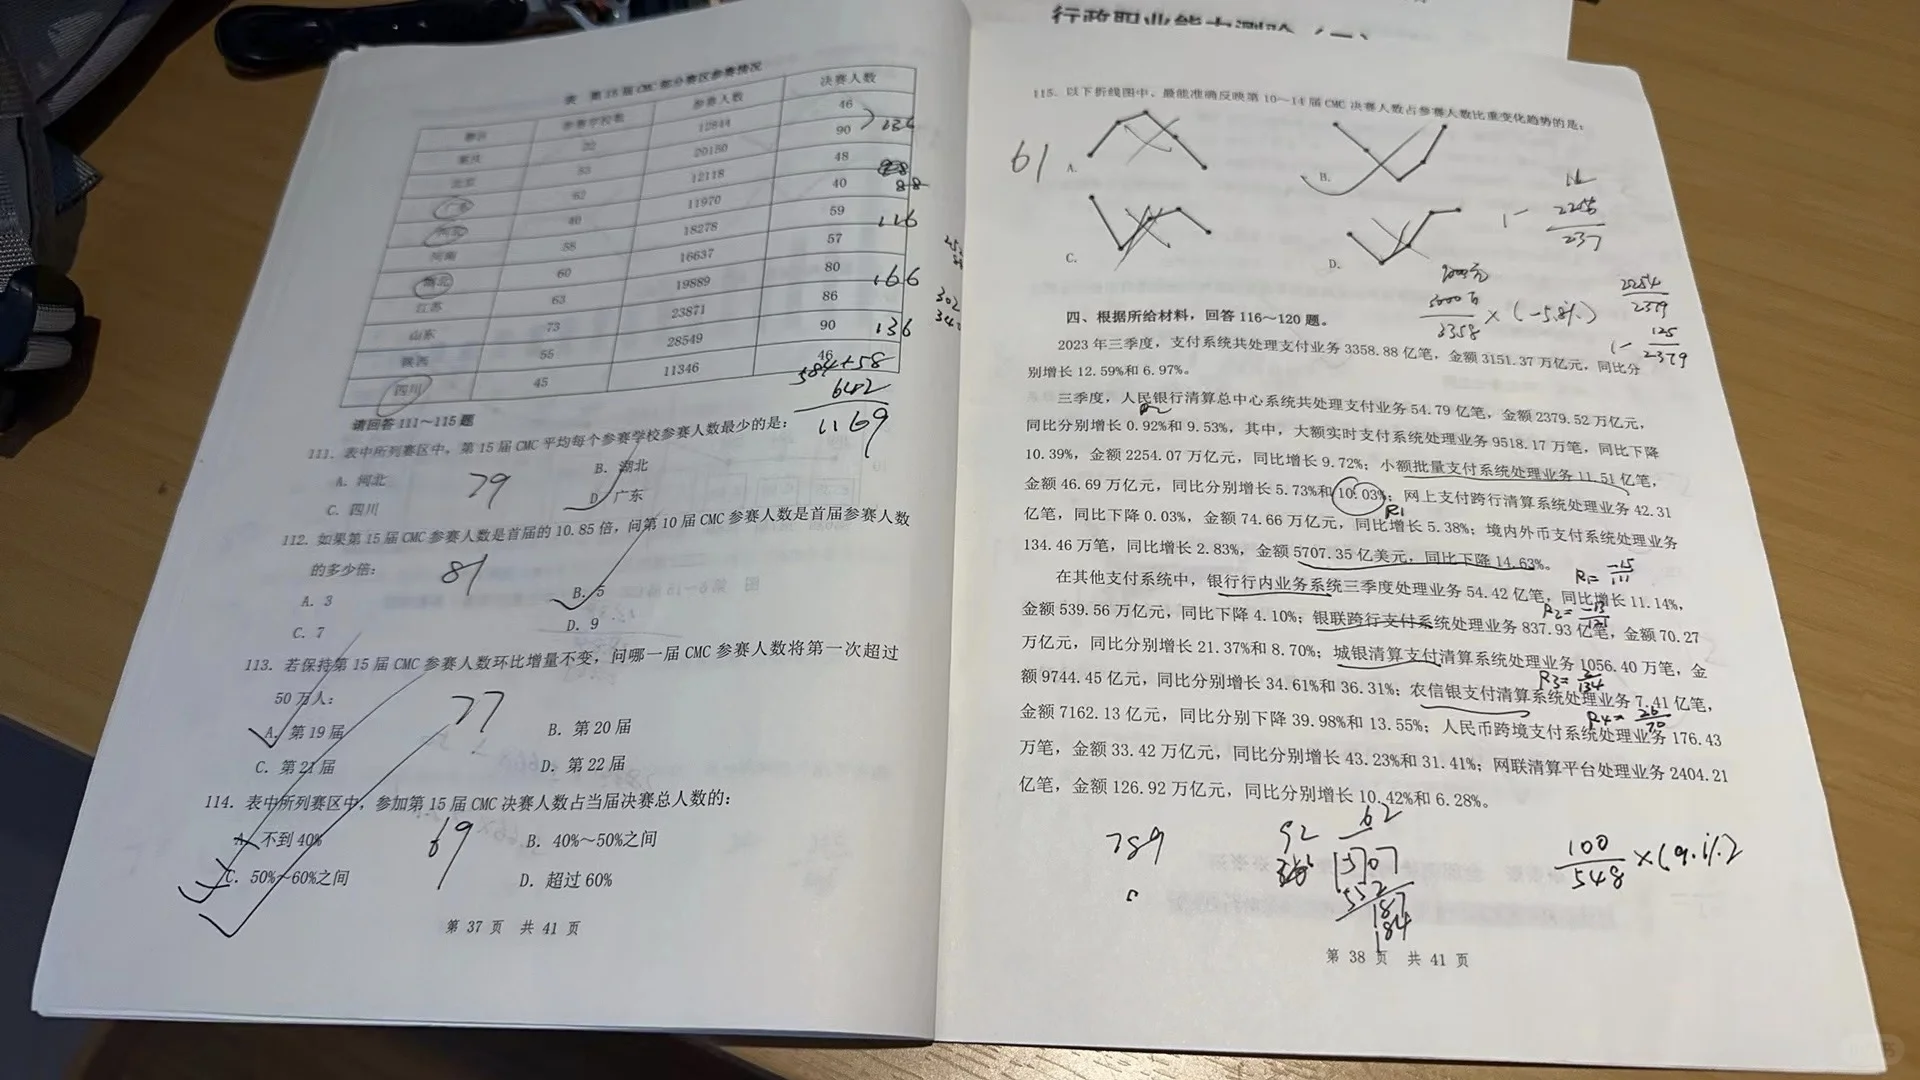 行政职业能力测验（二）
表 第15届CMC部分赛区参赛情况
赛区 参赛学校数 参赛人数 决赛人数
重庆 12844 46
北京 83 20150 90
广东 62 12118 48
河北 40 11970 40
河南 58 18278 59
湖北 60 16637 57
江苏 63 19889 80
山东 73 23871 86
陕西 55 28549 90
四川 45 11346 46
134
88
116
166
136
584+58
642
1169
请回答111～115题
111. 表中所列赛区中，第15届CMC平均每个参赛学校参赛人数最少的是：
A. 河北 B. 湖北
79
C. 四川 D. 广东
112. 如果第15届CMC参赛人数是首届的10.85倍，问第10届CMC参赛人数是首届参赛人数
的多少倍：
81
A. 3 B. 5
C. 7 D. 9
113. 若保持第15届CMC参赛人数环比增量不变，问哪一届CMC参赛人数将第一次超过
50万人：
77
A. 第19届 B. 第20届
C. 第21届 D. 第22届
114. 表中所列赛区中，参加第15届CMC决赛人数占当届决赛总人数的：
69
A. 不到40% B. 40%～50%之间
C. 50%～60%之间 D. 超过60%
第 37 页 共 41 页
115. 以下折线图中，最能准确反映第10～14届CMC决赛人数占参赛人数比重变化趋势的是：
61
A. B.
C. D.
2254
2379
1- 125
2379
3358 ×(-5.8%)
四、根据所给材料，回答116～120题。
2023年三季度，支付系统共处理支付业务3358.88亿笔，金额3151.37万亿元，同比分
别增长12.59%和6.97%。
三季度，人民银行清算总中心系统共处理支付业务54.79亿笔，金额2379.52万亿元，
同比分别增长0.92%和9.53%，其中，大额实时支付系统处理业务9518.17万笔，同比下降
10.39%，金额2254.07万亿元，同比增长9.72%；小额批量支付系统处理业务11.51亿笔，
金额46.69万亿元，同比分别增长5.73%和10.03%；网上支付跨行清算系统处理业务42.31
R1
亿笔，同比下降0.03%，金额74.66万亿元，同比增长5.38%；境内外币支付系统处理业务
134.46万笔，同比增长2.83%，金额5707.35亿美元，同比下降14.63%。
R1= -15
111
在其他支付系统中，银行行内业务系统三季度处理业务54.42亿笔，同比增长11.14%，
R2= -13
121
金额539.56万亿元，同比下降4.10%；银联跨行支付系统处理业务837.93亿笔，金额70.27
万亿元，同比分别增长21.37%和8.70%；城银清算支付清算系统处理业务1056.40万笔，金
R3= 2
134
额9744.45亿元，同比分别增长34.61%和36.31%；农信银支付清算系统处理业务7.41亿笔，
R4= 26
70
金额7162.13亿元，同比分别下降39.98%和13.55%；人民币跨境支付系统处理业务176.43
万笔，金额33.42万亿元，同比分别增长43.23%和31.41%；网联清算平台处理业务2404.21
亿笔，金额126.92万亿元，同比分别增长10.42%和6.28%。
789
92
62
5707
552
187
184
100
548
第 38 页 共 41 页